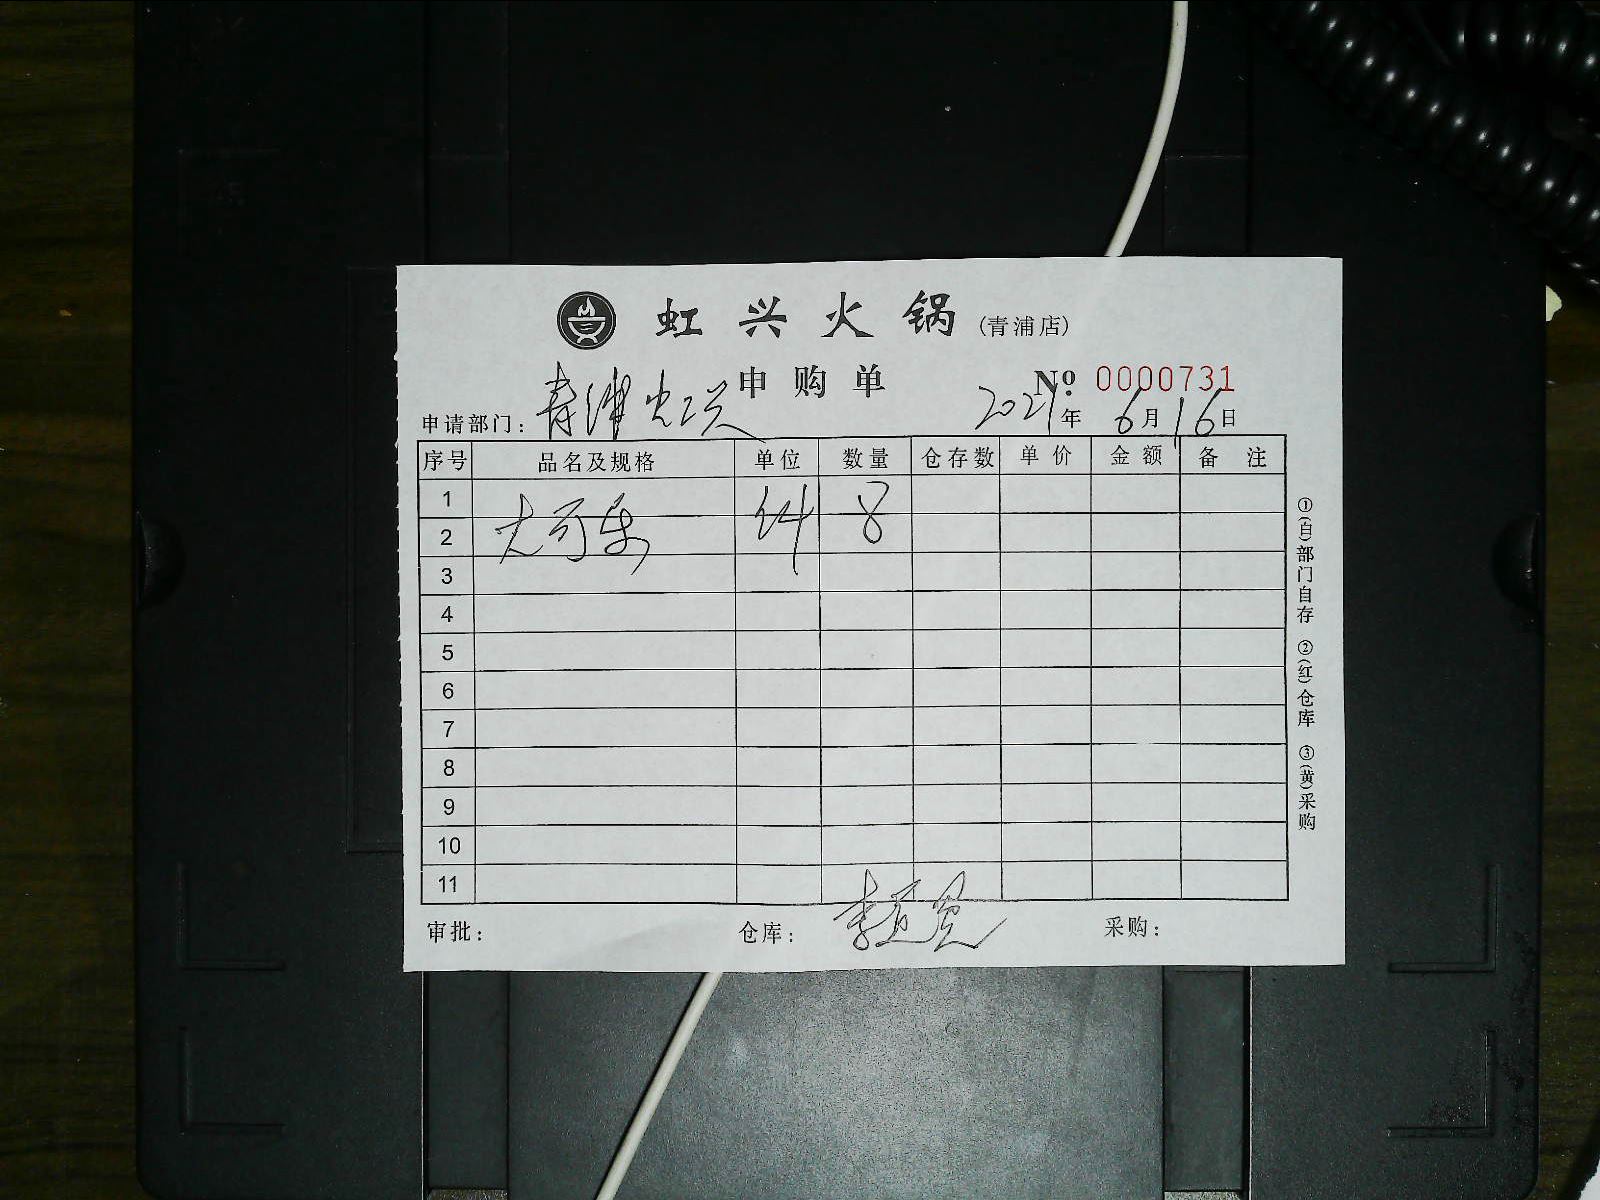 虹兴火锅(青浦店)
申购单 № 0000731
申请部门: 青浦虹兴 2021年6月16日
序号 品名及规格 单位 数量 仓存数 单价 金额 备注
1
2 大可乐 件 8
3
4
5
6
7
8
9
10
11
审批: 仓库: 采购:
①(白)部门自存 ②(红)仓库 ③(黄)采购